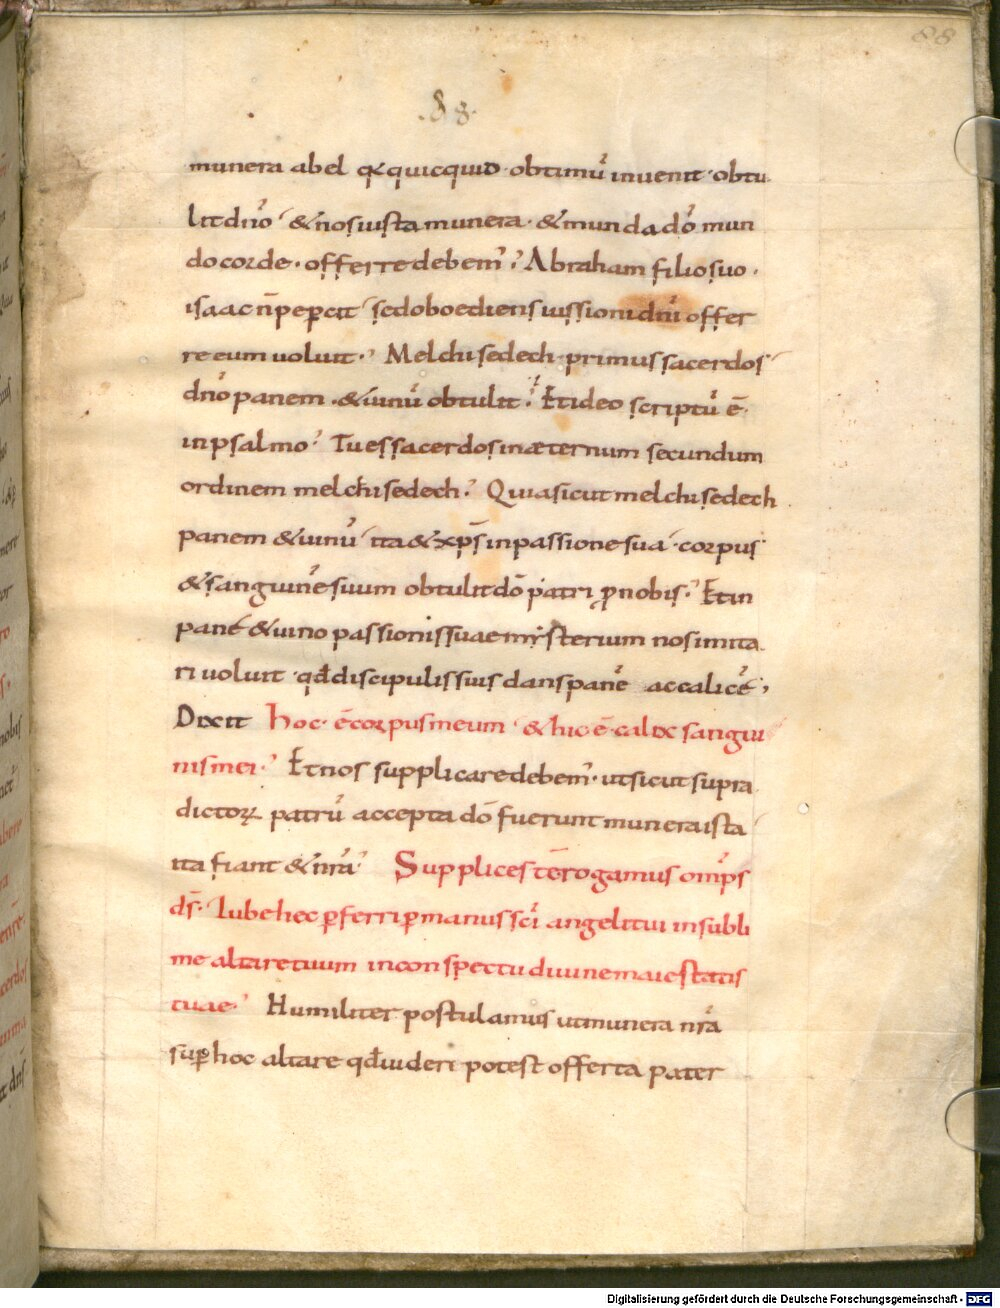 88
.88.
munera abel q̅ quicquid · obtimū inuenit · obtu
lit dn̄o & nos iusta munera · & munda dō mun
do corde · offerre debem᾽. Abraham filio suo ·
isaac n̄ peꝑcit sed oboediens iussioni dnī offer
re eum uoluit · Melchisedech primus sacerdos
dn̄o panem · & uinū obtulit. Et ideo scriptū ē·
in psalmo. Tu es sacerdos in æternum secundum
ordinem melchisedech. Quia sicut melchisedech
panem & uinū ita & xp̄s in passione sua · corpus
& sanguinē suum obtulit dō patri ꝓ nobis. Et in
panē & uino passionis suae mysterium nos imita
ri uoluit · qđ discipulis suis dans panē ac calicē,
Dixit hoc · ē corpus meum · & hic ē · calix sangui
nis mei · Et nos supplicare debem᾽ · ut sicut supra
dictoꝝ patrū accepta dō fuerunt munera ista
ita fiant & nr̄a Supplices tē rogamus omp̄s
ds̄ · Iube hec ꝑferri ꝑ manus sc̄i angeli tui in subli
me altare tuum in conspectu diuine maiestatis
tuae · Humiliter postulamus ut munera nr̄a
suꝑ hoc altare qđ uideri potest offerta pater
Digitalisierung gefördert durch die Deutsche Forschungsgemeinschaft - DFG